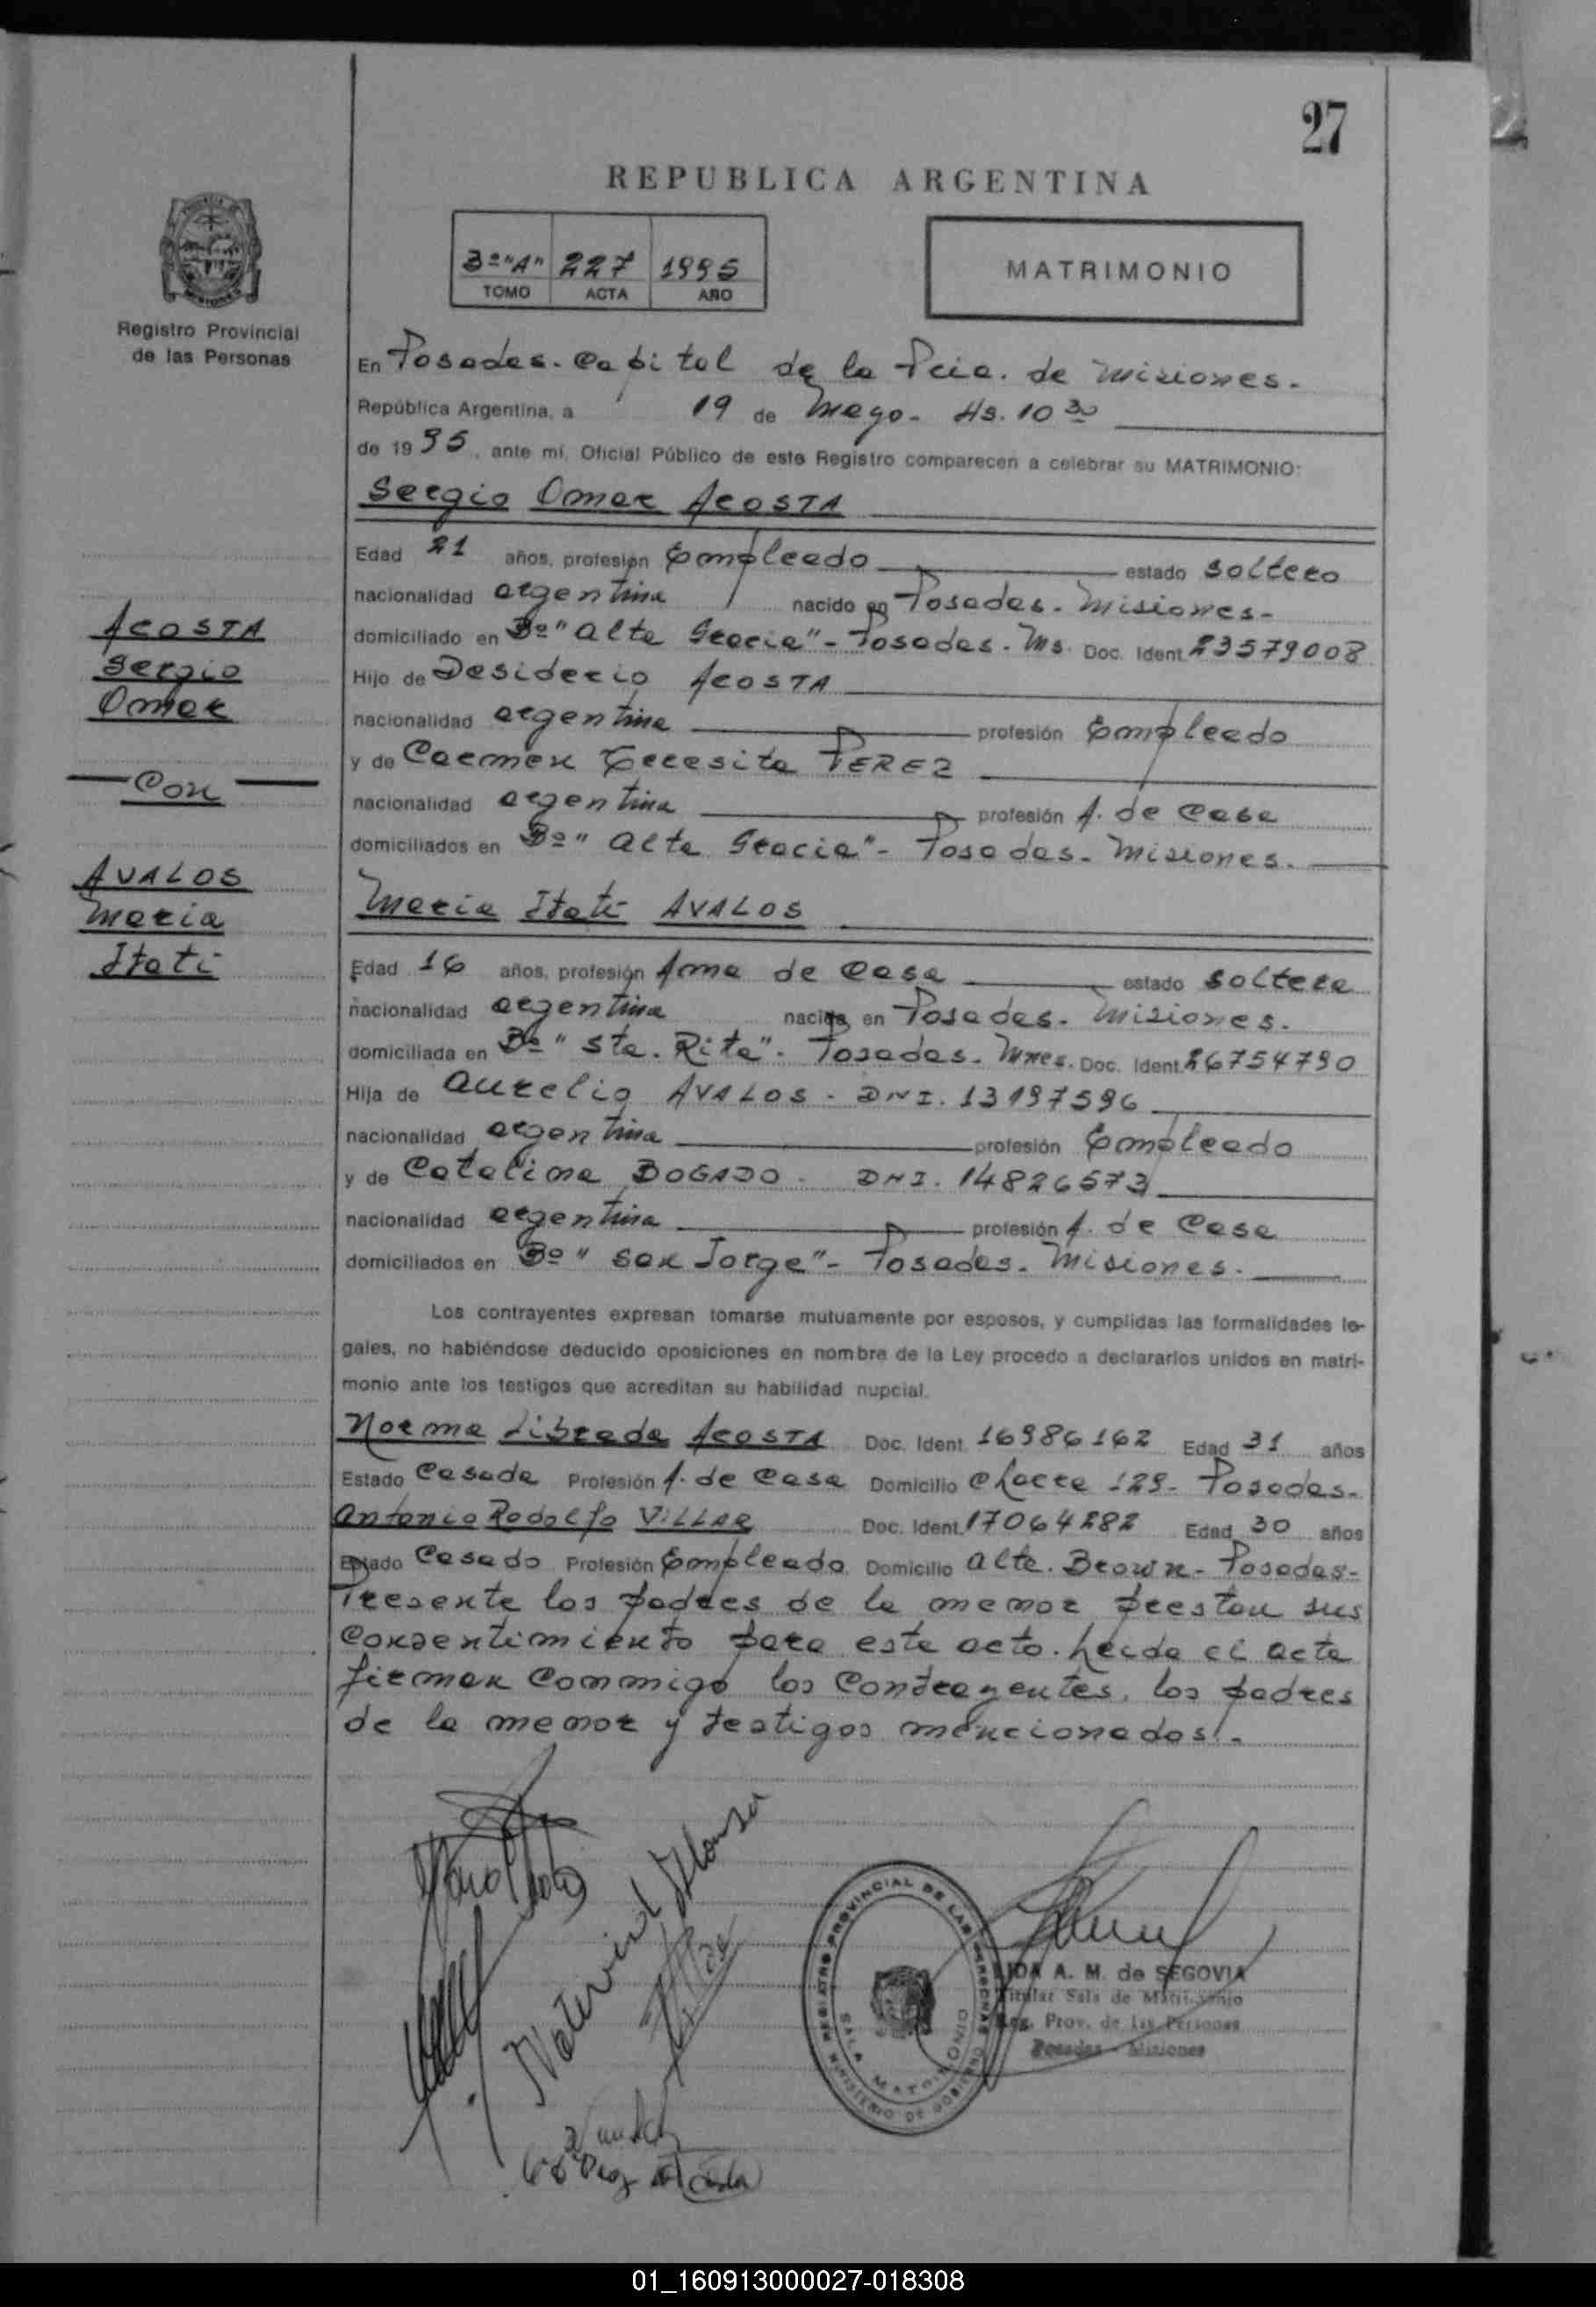 27
REPUBLICA ARGENTINA
3º "A" 227 1995
TOMO ACTA AÑO
MATRIMONIO
Registro Provincial
de las Personas
En Posadas. Capital de la Pcia. de Misiones.
República Argentina, a 19 de Mayo- Hs. 10 30
de 1995, ante mí, Oficial Público de este Registro comparecen a celebrar su MATRIMONIO:
Sergio Omar ACOSTA
Edad 21 años, profesión Empleado estado soltero
nacionalidad argentina nacido en Posadas. Misiones-
domiciliado en Bº "Alta Gracia"- Posadas. Ms. Doc. Ident. 23579008
Hijo de Desiderio ACOSTA
nacionalidad argentina profesión Empleado
y de Carmen Teresita PEREZ
nacionalidad argentina profesión A. de Casa
domiciliados en Bº "Alta Gracia"- Posadas- Misiones.
ACOSTA
Sergio
Omar
Con
AVALOS
Maria
Itati
Maria Itati AVALOS
Edad 16 años, profesión Ama de Casa estado soltera
nacionalidad argentina nacida en Posadas. Misiones.
domiciliada en Bº "Sta. Rita". Posadas. Mnes. Doc. Ident. 26754790
Hija de Aurelio AVALOS - DNI. 13197596
nacionalidad argentina profesión Empleado
y de Catalina BOGADO - DNI. 14826573
nacionalidad argentina profesión A. de Casa
domiciliados en Bº "San Jorge"- Posadas. Misiones.
Los contrayentes expresan tomarse mutuamente por esposos, y cumplidas las formalidades le-
gales, no habiéndose deducido oposiciones en nombre de la Ley procedo a declararlos unidos en matri-
monio ante los testigos que acreditan su habilidad nupcial.
Norma Librada ACOSTA Doc. Ident. 16986162 Edad 31 años
Estado Casada Profesión A. de Casa Domicilio Chacra 129- Posadas-
Antonio Rodolfo VILLAR Doc. Ident. 17064282 Edad 30 años
Estado Casado Profesión Empleado. Domicilio Alte. Brown- Posadas-
Presente los padres de la menor prestan sus
consentimiento para este acto. Leida el acta
firman conmigo los contrayentes, los padres
de la menor y testigos mencionados.-
REGISTRO PROVINCIAL DE LAS PERSONAS
SALA MATRIMONIO
MINISTERIO DE GOBIERNO
A. M. de SEGOVIA
Titular Sala de Matrimonio
Reg. Prov. de las Personas
Posadas - Misiones
01_160913000027-018308